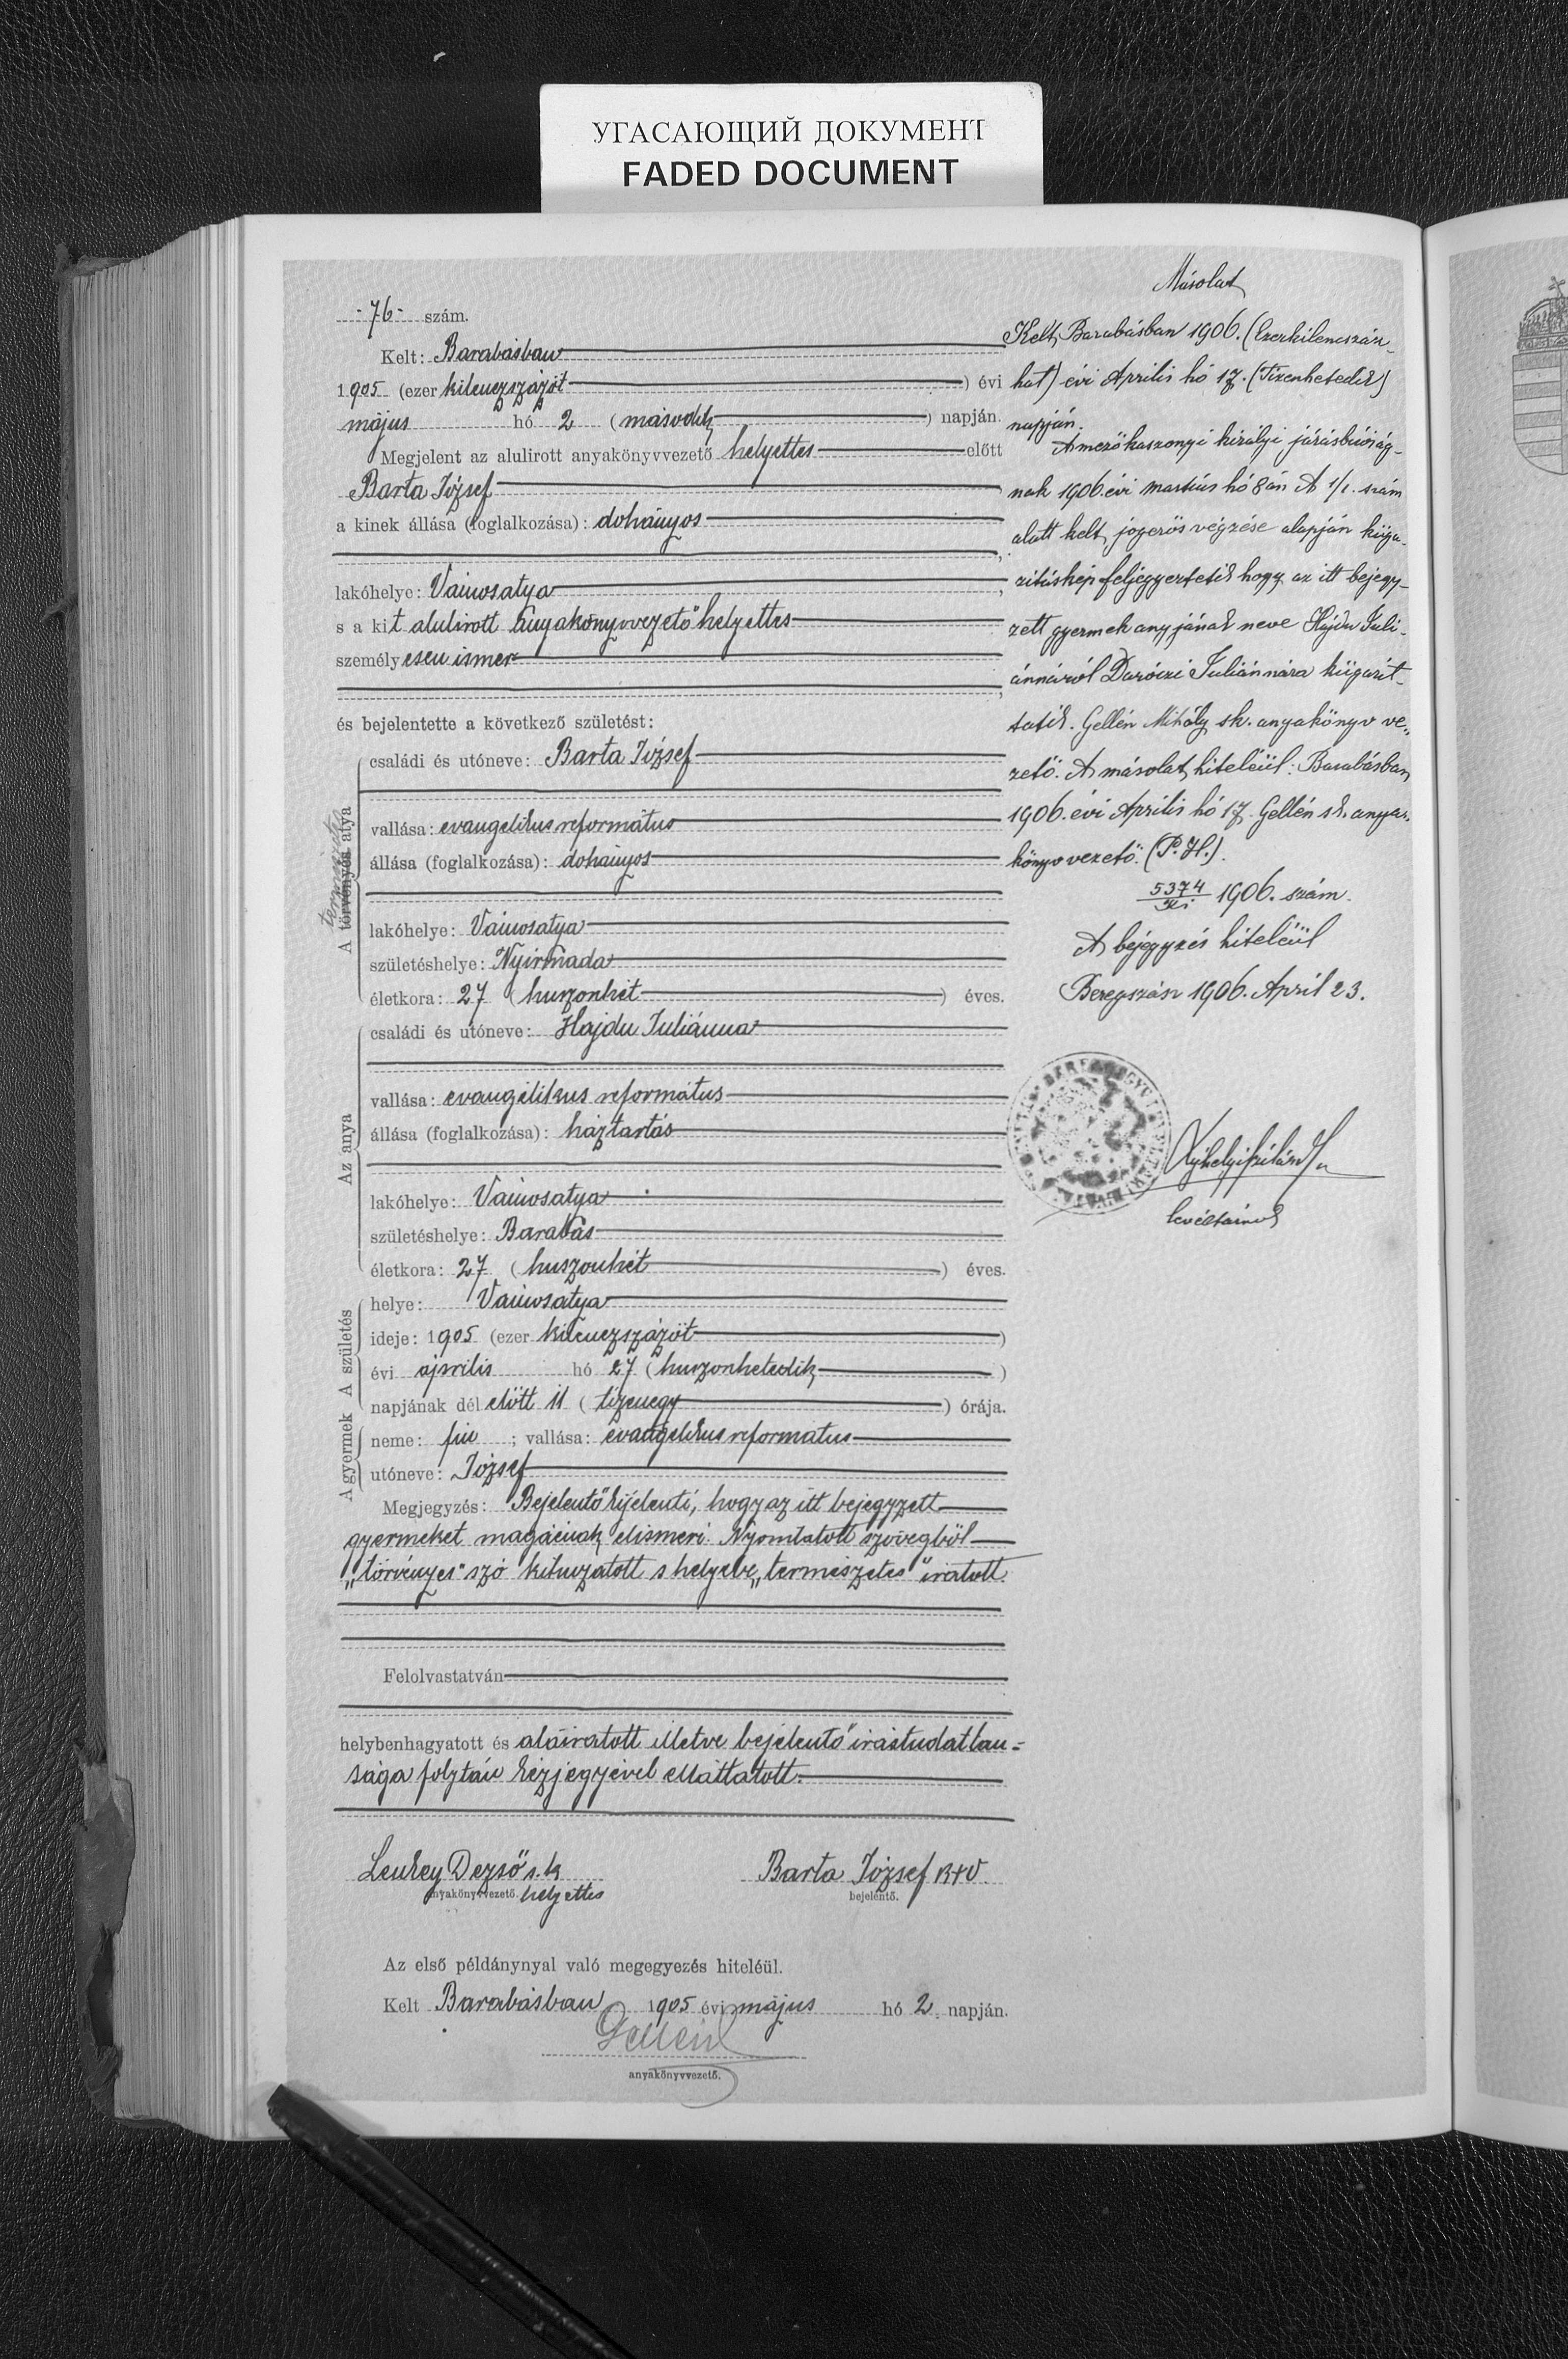 УГАСАЮЩИЙ ДОКУМЕНТ
FADED DOCUMENT
-76- szám.
Kelt: Barabásban
1905 (ezer kilenczszázöt) évi
május hó 2 (második) napján.
Megjelent az alulirott anyakönyvvezető helyettes előtt
Barta József
a kinek állása (foglalkozása): dohányos
lakóhelye: Vámosatya
s a kit alulirott anyakönyvvezető helyettes
személyesen ismer
és bejelentette a következő születést:
A törvényes atya
természetes
családi és utóneve: Barta József
vallása: evangelikus református
állása (foglalkozása): dohányos
lakóhelye: Vámosatya
születéshelye: Nyirmada
életkora: 27 (huszonhét) éves.
Az anya
családi és utóneve: Hajdu Juliánna
vallása: evangelikus református
állása (foglalkozása): háztartás
lakóhelye: Vámosatya
születéshelye: Barabás
életkora: 27 (huszonhét) éves.
A születés
helye: Vámosatya
ideje: 1905 (ezer kilenczszázöt)
évi április hó 27 (huszonhetedik)
napjának dél előtt 11 (tizenegy) órája.
A gyermek
neme: fiu; vallása: evangelikus reformatus
utóneve: József
Megjegyzés: Bejelentő kijelenti, hogy az itt bejegyzett
gyermeket magáénak elismeri. Nyomtatott szövegből
„törvényes" szó kihuzatott s helyebe „természetes" iratott.
Felolvastatván
helybenhagyatott és aláiratott illetve bejelentő irástudatlan=
sága folytán kézjegyével elláttatott.
Lenkey Dezső s.k
anyakönyvvezető. helyettes
Barta József
bejelentő.
Az első példánynyal való megegyezés hiteléül.
Kelt Barabásban 1905 évi május hó 2 napján.
Gellén
anyakönyvvezető.
Másolat
Kelt Barabásban 1906. (Ezerkilencszáz-
hat) évi Április hó 17. (Tizenhetedik)
napján.
A mezőkaszonyi királyi járásbiróság-
nak 1906. évi martius hó 8 án A 1/1. szám
alatt kelt jogerős végzése alapján kiiga-
zitáskép feljegyeztetik hogy az itt bejegy-
zett gyermek anyjának neve Hajdu Juli-
ánnáról Daróczi Juliánnára kiigazit-
tatik. Gellén Mihály sk. anyakönyv ve-
zető. A másolat hiteléül: Barabásban
1906. évi Április hó 17. Gellén sk. anya-
könyvvezető. (P.H.).
5374/Ki 1906. szám.
A bejegyzés hiteléül
Beregszász 1906. April 23.
levéltárnok